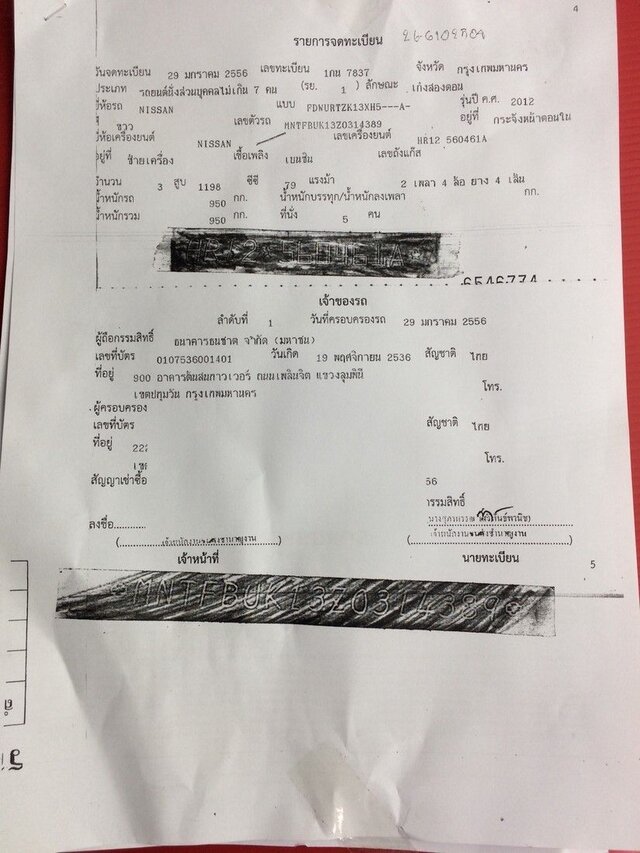 4
รายการจดทะเบียน
วันจดทะเบียน 29 มกราคม 2556 เลขทะเบียน 1กน 7837 จังหวัด กรุงเทพมหานคร
ประเภท รถยนต์นั่งส่วนบุคคลไม่เกิน 7 คน (รย. 1 ) ลักษณะ เก๋งสองตอน
ี่ห้อรถ NISSAN แบบ FDNURTZK13XH5---A- รุ่นปี ค.ศ. 2012
ขาว เลขตัวรถ MNTFBUK13Z0314389 อยู่ที่ กระจังหน้าตอนใน
ี่ห้อเครื่องยนต์ NISSAN เลขเครื่องยนต์ HR12 560461A
อยู่ที่ ซ้ายเครื่อง เชื้อเพลิง เบนซิน เลขถังแก๊ส
จำนวน 3 สูบ 1198 ซีซี 79 แรงม้า 2 เพลา 4 ล้อ ยาง 4 เส้น
น้ำหนักรถ 950 กก. น้ำหนักบรรทุก/น้ำหนักลงเพลา กก.
น้ำหนักรวม 950 กก. ที่นั่ง 5 คน
6546774
เจ้าของรถ
ลำดับที่ 1 วันที่ครอบครองรถ 29 มกราคม 2556
ผู้ถือกรรมสิทธิ์ ธนาคารธนชาต จำกัด (มหาชน)
เลขที่บัตร 0107536001401 วันเกิด 19 พฤศจิกายน 2536 สัญชาติ ไทย
ที่อยู่ 900 อาคารต้นสนทาวเวอร์ ถนนเพลินจิต แขวงลุมพินี
เขตปทุมวัน กรุงเทพมหานคร โทร.
ผู้ครอบครอง
เลขที่บัตร สัญชาติ ไทย
ที่อยู่ 222
โทร.
สัญญาเช่าซื้อ 56
ารรมสิทธิ์
ลงชื่อ
เจ้าพนักงานขนส่งชำนาญงาน เจ้าพนักงานขนส่งชำนาญงาน
เจ้าหน้าที่ นายทะเบียน
5
*MNTFBUK13Z0314389*